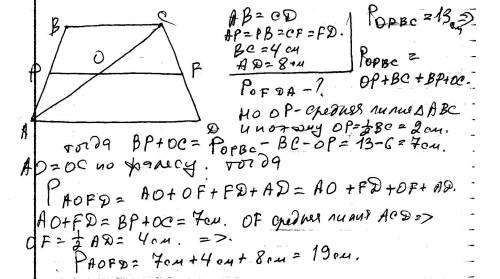 B
C
O
P
F
A
D
AB = CD
AP = PB = CF = FD.
BC = 4 см
AD = 8 см
P OFDA - ?
P OPBC = 13 см =>
P OPBC =
OP + BC + BP + OC.
но OP - средняя линия △ ABC
и потому OP = ½ BC = 2 см.
тогда BP + OC = P OPBC - BC - OP = 13 - 6 = 7 см.
AO = OC по фалесу. тогда
P AOFD = AO + OF + FD + AD = AO + FD + OF + AD.
AO + FD = BP + OC = 7 см. OF средняя линия ACD =>
OF = ½ AD = 4 см. =>.
P AOFD = 7 см + 4 см + 8 см = 19 см.